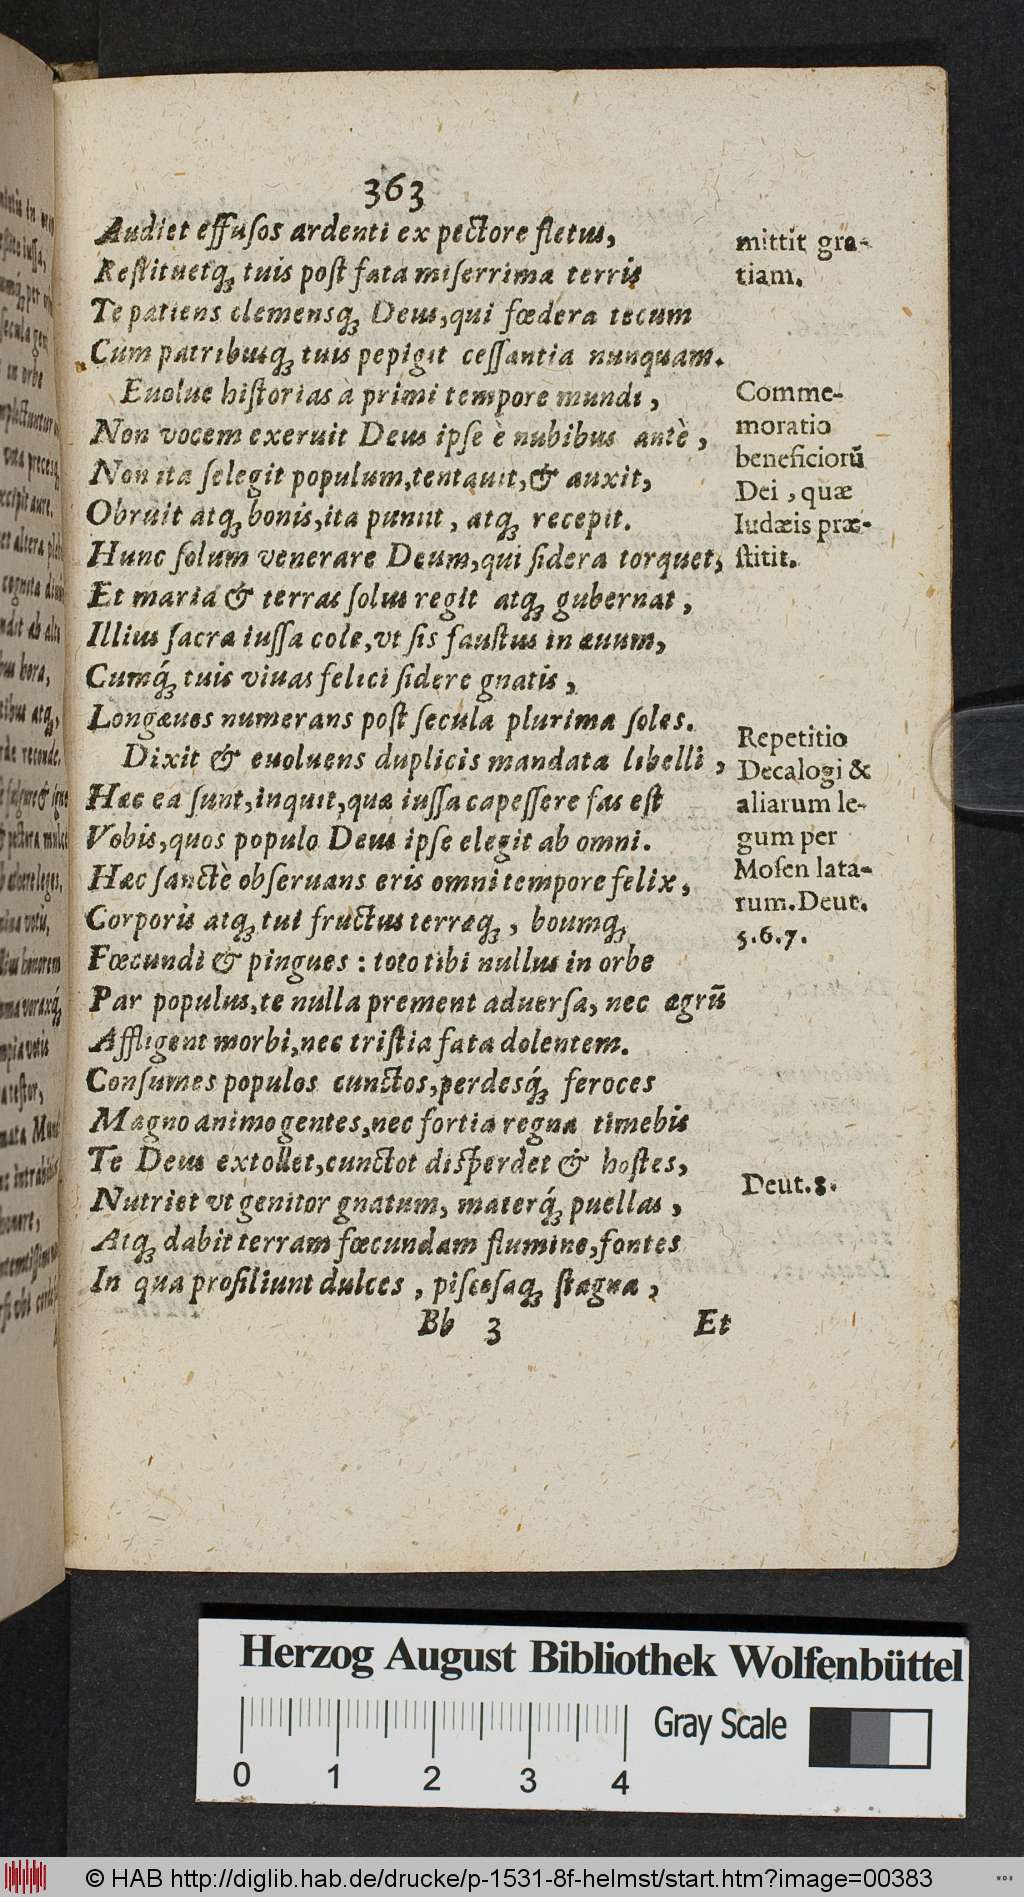 363
Audiet effusos ardenti ex pectore fletus,
Restituetq́; tuis post fata miserrima terris
Te patiens clemensq́; Deus, qui fœdera tecum
Cum patribusq́; tuis pepigit cessantia nunquam.
Euolue historias à primi tempore mundi,
Non vocem exeruit Deus ipse è nubibus antè,
Non ita selegit populum, tentauit, & auxit,
Obruit atq; bonis, ita punit, atq; recepit.
Hunc solum venerare Deum, qui sidera torquet,
Et maria & terras solus regit atq; gubernat,
Illius sacra iussa cole, vt sis faustus in æuum,
Cumq́; tuis viuas felici sidere gnatis,
Longæuos numerans post secula plurima soles.
Dixit & euoluens duplicis mandata libelli,
Hæc ea sunt, inquit, quæ iussa capessere fas est
Vobis, quos populo Deus ipse elegit ab omni.
Hæc sanctè obseruans eris omni tempore felix,
Corporis atq; tui fructus terræq;, boumq;
Fœcundi & pingues: toto tibi nullus in orbe
Par populus, te nulla prement aduersa, nec ægrũ
Affligent morbi, nec tristia fata dolentem.
Consumes populos cunctos, perdesq́; feroces
Magno animo gentes, nec fortia regna timebis
Te Deus extollet, cunctot disperdet & hostes,
Nutriet vt genitor gnatum, materq́; puellas,
Atq; dabit terram fœcundam flumine, fontes
In qua prosiliunt dulces, piscosaq; stagna,
Bb 3 Et
mittit gra-
tiam.
Comme-
moratio
beneficiorũ
Dei, quæ
Iudæis præ-
stitit.
Repetitio
Decalogi &
aliarum le-
gum per
Mosen lata-
rum. Deut.
5.6.7.
Deut.8.
Herzog August Bibliothek Wolfenbüttel
0 1 2 3 4
Gray Scale
© HAB http://diglib.hab.de/drucke/p-1531-8f-helmst/start.htm?image=00383